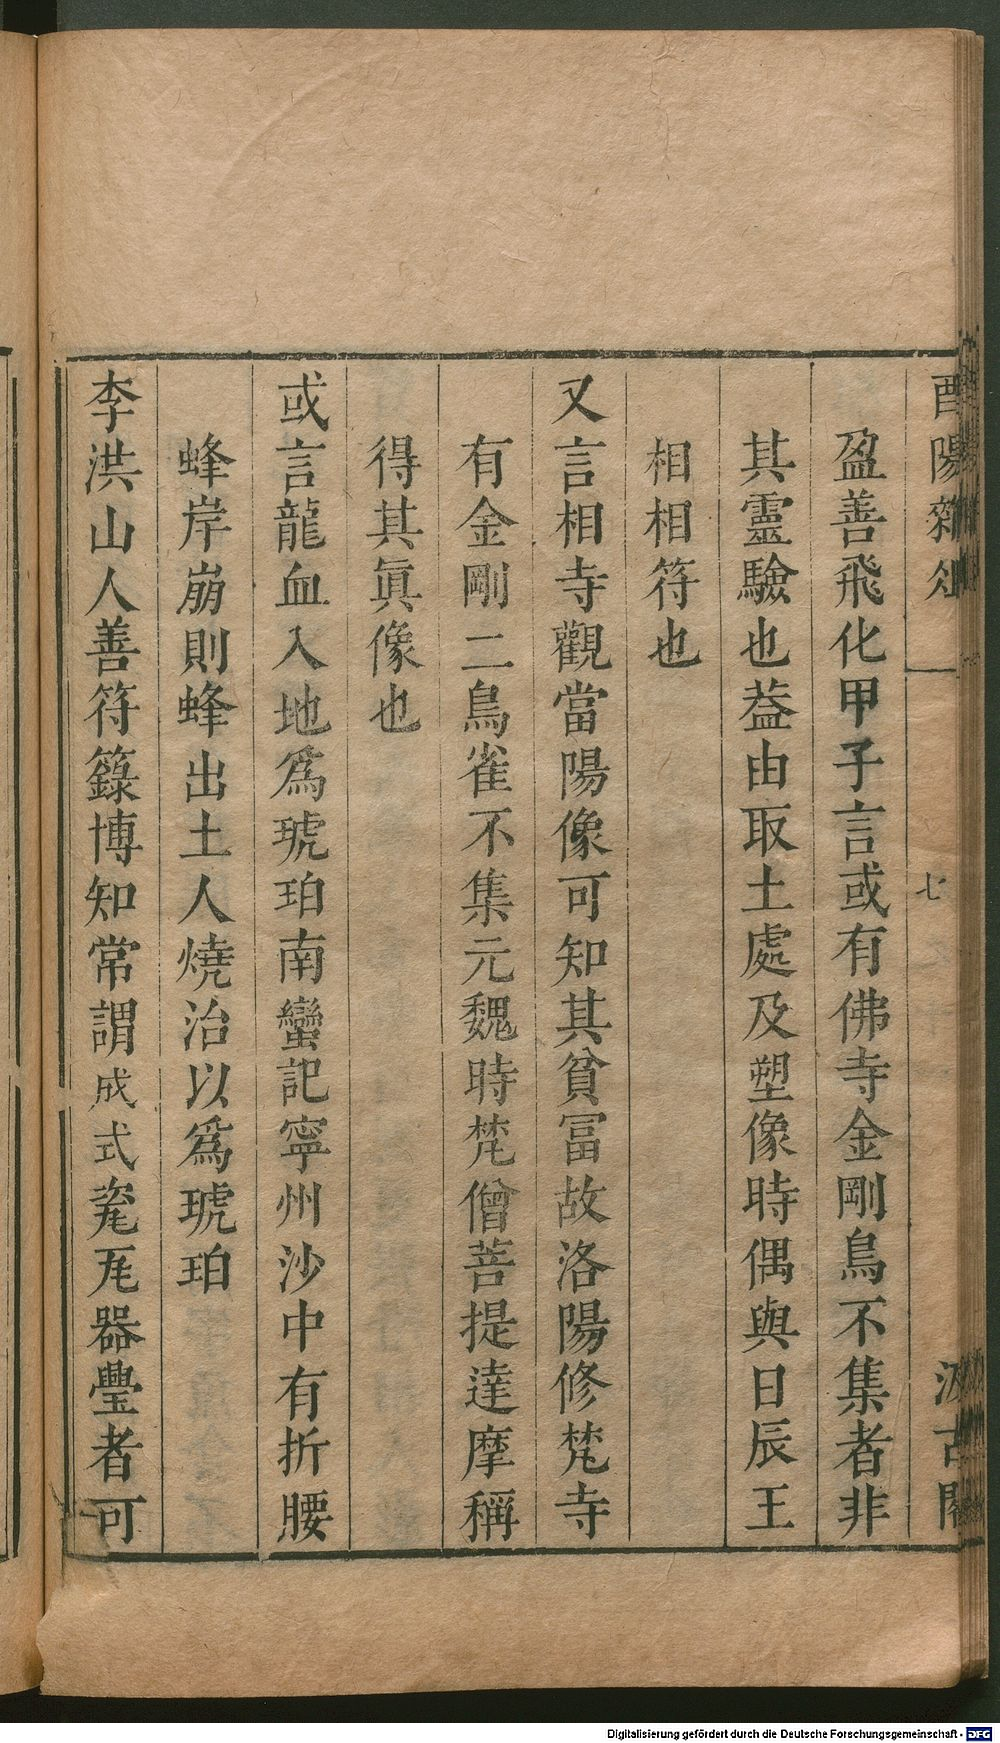 酉陽雜俎
七
汲古閣
盈善飛化甲子言或有佛寺金剛鳥不集者非
其靈驗也葢由取土處及塑像時偶與日辰王
相相符也
又言相寺觀當陽像可知其貧冨故洛陽修梵寺
有金剛二鳥雀不集元魏時梵僧菩提達摩稱
得其眞像也
或言龍血入地爲琥珀南蠻記寧州沙中有折腰
蜂岸崩則蜂出土人燒治以爲琥珀
李洪山人善符籙博知常謂成式瓷瓦器璺者可
Digitalisierung gefördert durch die Deutsche Forschungsgemeinschaft - DFG